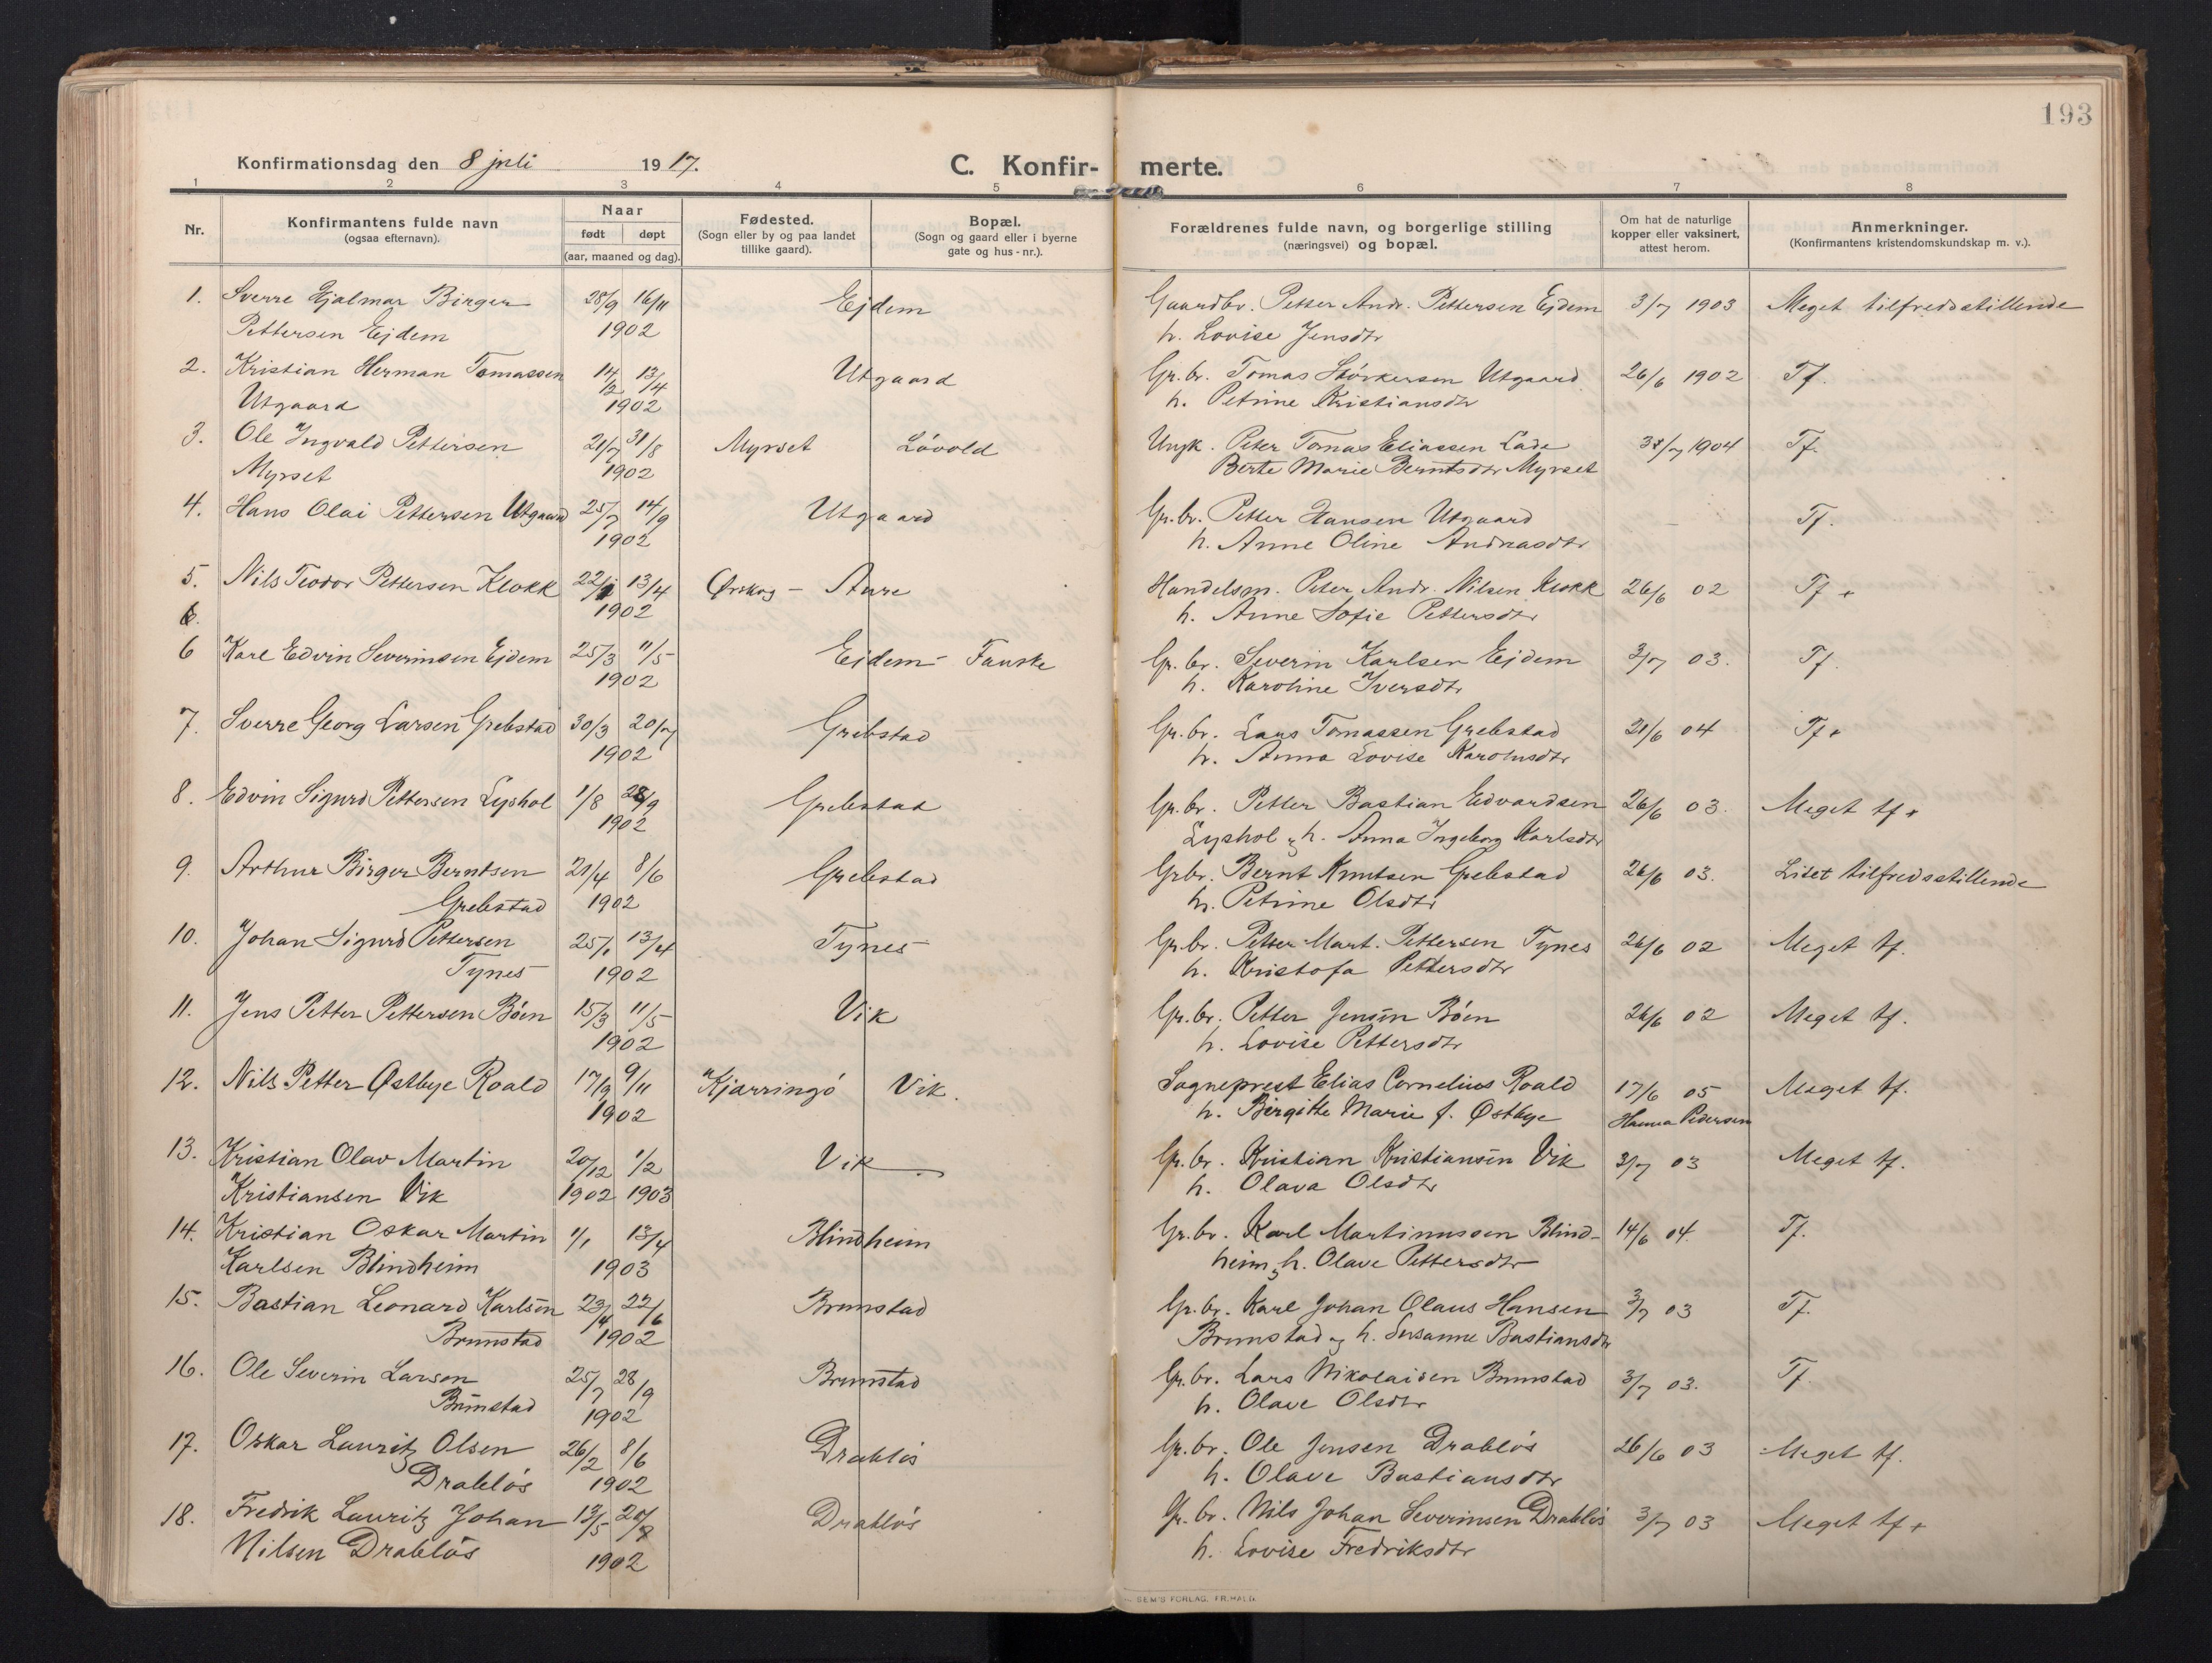 193
Konfirmationsdag den 8 juli 1917. C. Konfir- merte.
1 2 3 4 5 6 7 8
Nr. Konfirmantens fulde navn (ogsaa efternavn). Naar født døpt (aar, maaned og dag). Fødested. (Sogn eller by og paa landet tillike gaard). Bopæl. (Sogn og gaard eller i byerne gate og hus-nr.). Forældrenes fulde navn, og borgerlige stilling (næringsvei) og bopæl. Om hat de naturlige kopper eller vaksinert, attest herom. Anmerkninger. (Konfirmantens kristendomskundskap m. v.).
1. Sverre Hjalmar Birger 28/9 16/11 Ejdem Gaardbr. Petter Andr. Pettersen Ejdem 3/7 1903 Meget tilfredsstillende
Pettersen Ejdem 1902 h. Lovise Jensdtr
2. Kristian Herman Tomassen 14/2 13/4 Utgaard Gr. br. Tomas Størkersen Utgaard 26/6 1902 Tf.
Utgaard 1902 h. Petrine Kristiansdtr
3. Ole Ingvald Pettersen 21/7 31/8 Myrset Løvold Ungk. Peter Tomas Eliassen Lade /7 1904 Tf.
Myrset 1902 Berte Marie Berntsdtr Myrset
4. Hans Olai Pettersen Utgaard 25/7 14/9 Utgaard Gr. br. Petter Hansen Utgaard Tf.
1902 h. Anne Oline Andreasdtr
5. Nils Teodor Pettersen Klokk 22/1 13/4 Ørskog - Aure Handelsm. Peter Andr. Nilsen Klokk 26/6 02 Tf +
6. 1902 h. Anne Sofie Pettersdtr
6 Kare Edvin Severinsen Ejdem 25/3 11/5 Ejdem - Fauske Gr. br. Severin Karlsen Ejdem 3/7 03. Tf.
1902 h. Karoline Iversdtr
7. Sverre Georg Larsen Grebstad 30/3 20/7 Grebstad Gr. br. Lars Tomassen Grebstad 21/6 04 Tf+
1902 h. Anna Lovise Karolusdtr
8. Edvin Sigurd Pettersen Lyshol 1/8 28/9 Grebstad Gr. br. Petter Bastian Edvardsen 26/6 03. Meget tf +
1902 Lyshol og h. Anna Ingeborg Karlsdtr
9. Arthur Birger Berntsen 21/4 8/6 Grebstad Grbr. Bernt Knutsen Grebstad 26/6 03. Litet tilfredsstillende
Grebstad 1902 h. Petrine Olsdtr
10. Johan Sigurd Pettersen 25/1 13/4 Tynes Gr. br. Petter Mart. Pettersen Tynes 26/6 02 Meget tf.
Tynes 1902 h. Kristofa Pettersdtr
11. Jens Petter Pettersen Böen 15/3 11/5 Vik Gr. br. Petter Jensen Böen 26/6 02 Meget tf.
1902 h. Lovise Pettersdtr
12. Nils Petter Østbye Roald 17/9 9/11 Kjærringö Vik. Sogneprest Elias Cornelius Roald 17/6 05 Meget tf.
1902 h. Birgitte Marie f. Østbye Hanna Pedersen
13. Kristian Olav Martin 20/12 1/2 Vik Gr. br. Kristian Kristiansen Vik 3/7 03 Meget tf.
Kristiansen Vik 1902 1903 h. Olava Olsdtr
14. Kristian Oskar Martin 1/1 13/4 Blindheim Gr. br. Karl Martinussen Blind- 14/6 04. Tf.
Karlsen Blindheim 1903 heim og h. Olave Pettersdtr
15. Bastian Leonard Karlsen 23/4 22/6 Brunstad Gr. br. Karl Johan Olaus Hansen 3/7 03 Tf.
Brunstad 1902 Brunstad og h. Susanne Bastiansdtr
16. Ole Severin Larsen 25/7 28/9 Brunstad Gr. br. Lars Nikolaisen Brunstad 3/7 03. Tf.
Brunstad 1902 h. Olave Olsdtr
17. Oskar Lauritz Olsen 26/2 8/6 Drabløs Gr. br. Ole Jensen Drabløs 26/6 03 Meget tf.
Drabløs 1902 h. Olave Bastiansdtr
18. Fredrik Lauritz Johan 13/5 20/ Drabløs Gr. br. Nils Johan Severinsen Drabløs 3/7 03 Meget tf +
Nilsen Drabløs 1902 h. Lovise Fredriksdtr
SEM'S FORLAG. FR.HALD.